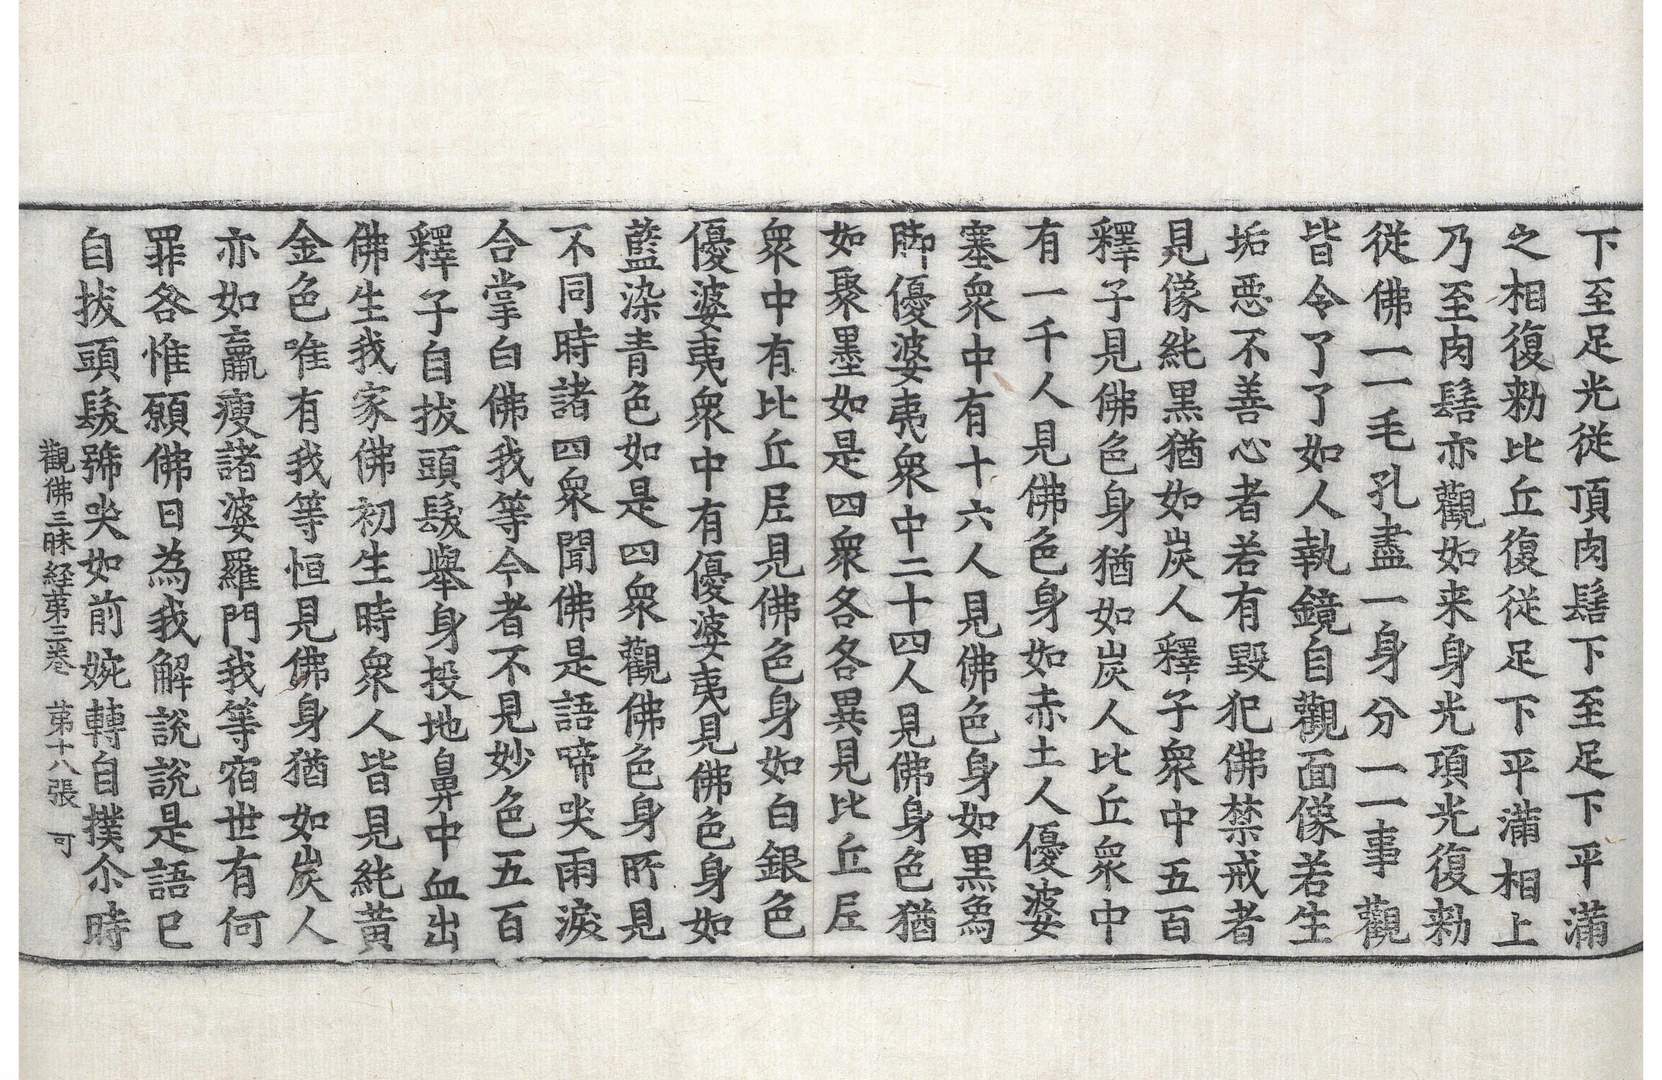 下至足光従頂肉髻下至足下平滿
之相復勑比丘復從足下平滿相上
乃至肉髻亦觀如来身光項光復勑
從佛一一毛孔盡一身分一一事觀
皆令了了如人執鏡自觀面像若生
垢惡不善心者若有毀犯佛禁戒者
見像純黒猶如炭人釋子衆中五百
釋子見佛色身猶如炭人比丘衆中
有一千人見佛色身如赤土人優婆
塞衆中有十六人見佛色身如黒象
脚優婆夷衆中二十四人見佛身色猶
如聚墨如是四衆各各異見比丘尼
衆中有比丘尼見佛色身如白銀色
優婆夷衆中有優婆夷見佛色身如
藍染青色如是四衆觀佛色身所見
不同時諸四衆聞佛是語啼哭雨淚
合掌白佛我等今者不見妙色五百
釋子自拔頭髮舉身投地鼻中血出
佛生我家佛初生時衆人皆見純黃
金色唯有我等恒見佛身猶如炭人
亦如羸瘦諸婆羅門我等宿世有何
罪咎惟願佛日為我解說說是語已
自拔頭髮號哭如前婉轉自撲尒時
觀佛三昧経苐三卷 苐十八張 可